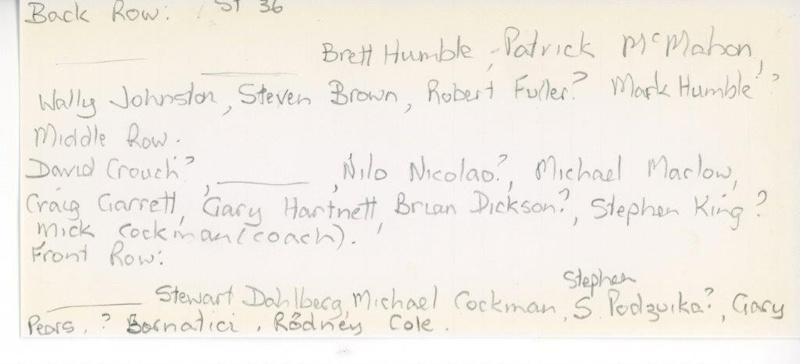 Back Row: ST 36
______ ______ Brett Humble, Patrick McMahon,
Wally Johnston, Steven Brown, Robert Fuller? Mark Humble?
Middle Row.
David Crouch?, ______, Nilo Nicolao?, Michael Marlow,
Craig Garrett, Gary Hartnett, Brian Dickson?, Stephen King?
Mick Cockman (coach).
Front Row:
Stephen
______ Stewart Dahlberg, Michael Cockman, S. Podzuika?, Gary
Pears, ? Bornatici, Rodney Cole.